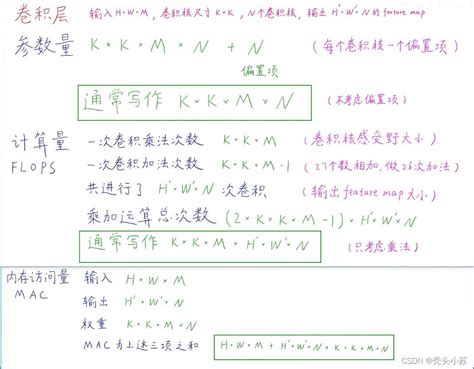 卷积层 输入 H×W×M, 卷积核尺寸 K×K, N个卷积核, 输出 H'×W'×N 的 feature map
参数量 K×K×M×N + N (每个卷积核一个偏置项)
偏置项
通常写作 K×K×M×N (不考虑偏置项)
计算量 一次卷积乘法次数 K×K×M (卷积核感受野大小)
FLOPS 一次卷积加法次数 K×K×M-1 (27个数相加,做26次加法)
共进行了 H'×W'×N 次卷积 (输出 feature map 大小)
乘加运算总次数 (2×K×K×M-1)×H'×W'×N
通常写作 K×K×M×H'×W'×N (只考虑乘法)
内存访问量 输入 H×W×M
MAC 输出 H'×W'×N
权重 K×K×M×N
MAC为上述三项之和 H×W×M + H'×W'×N + K×K×M×N
CSDN @秃头小苏